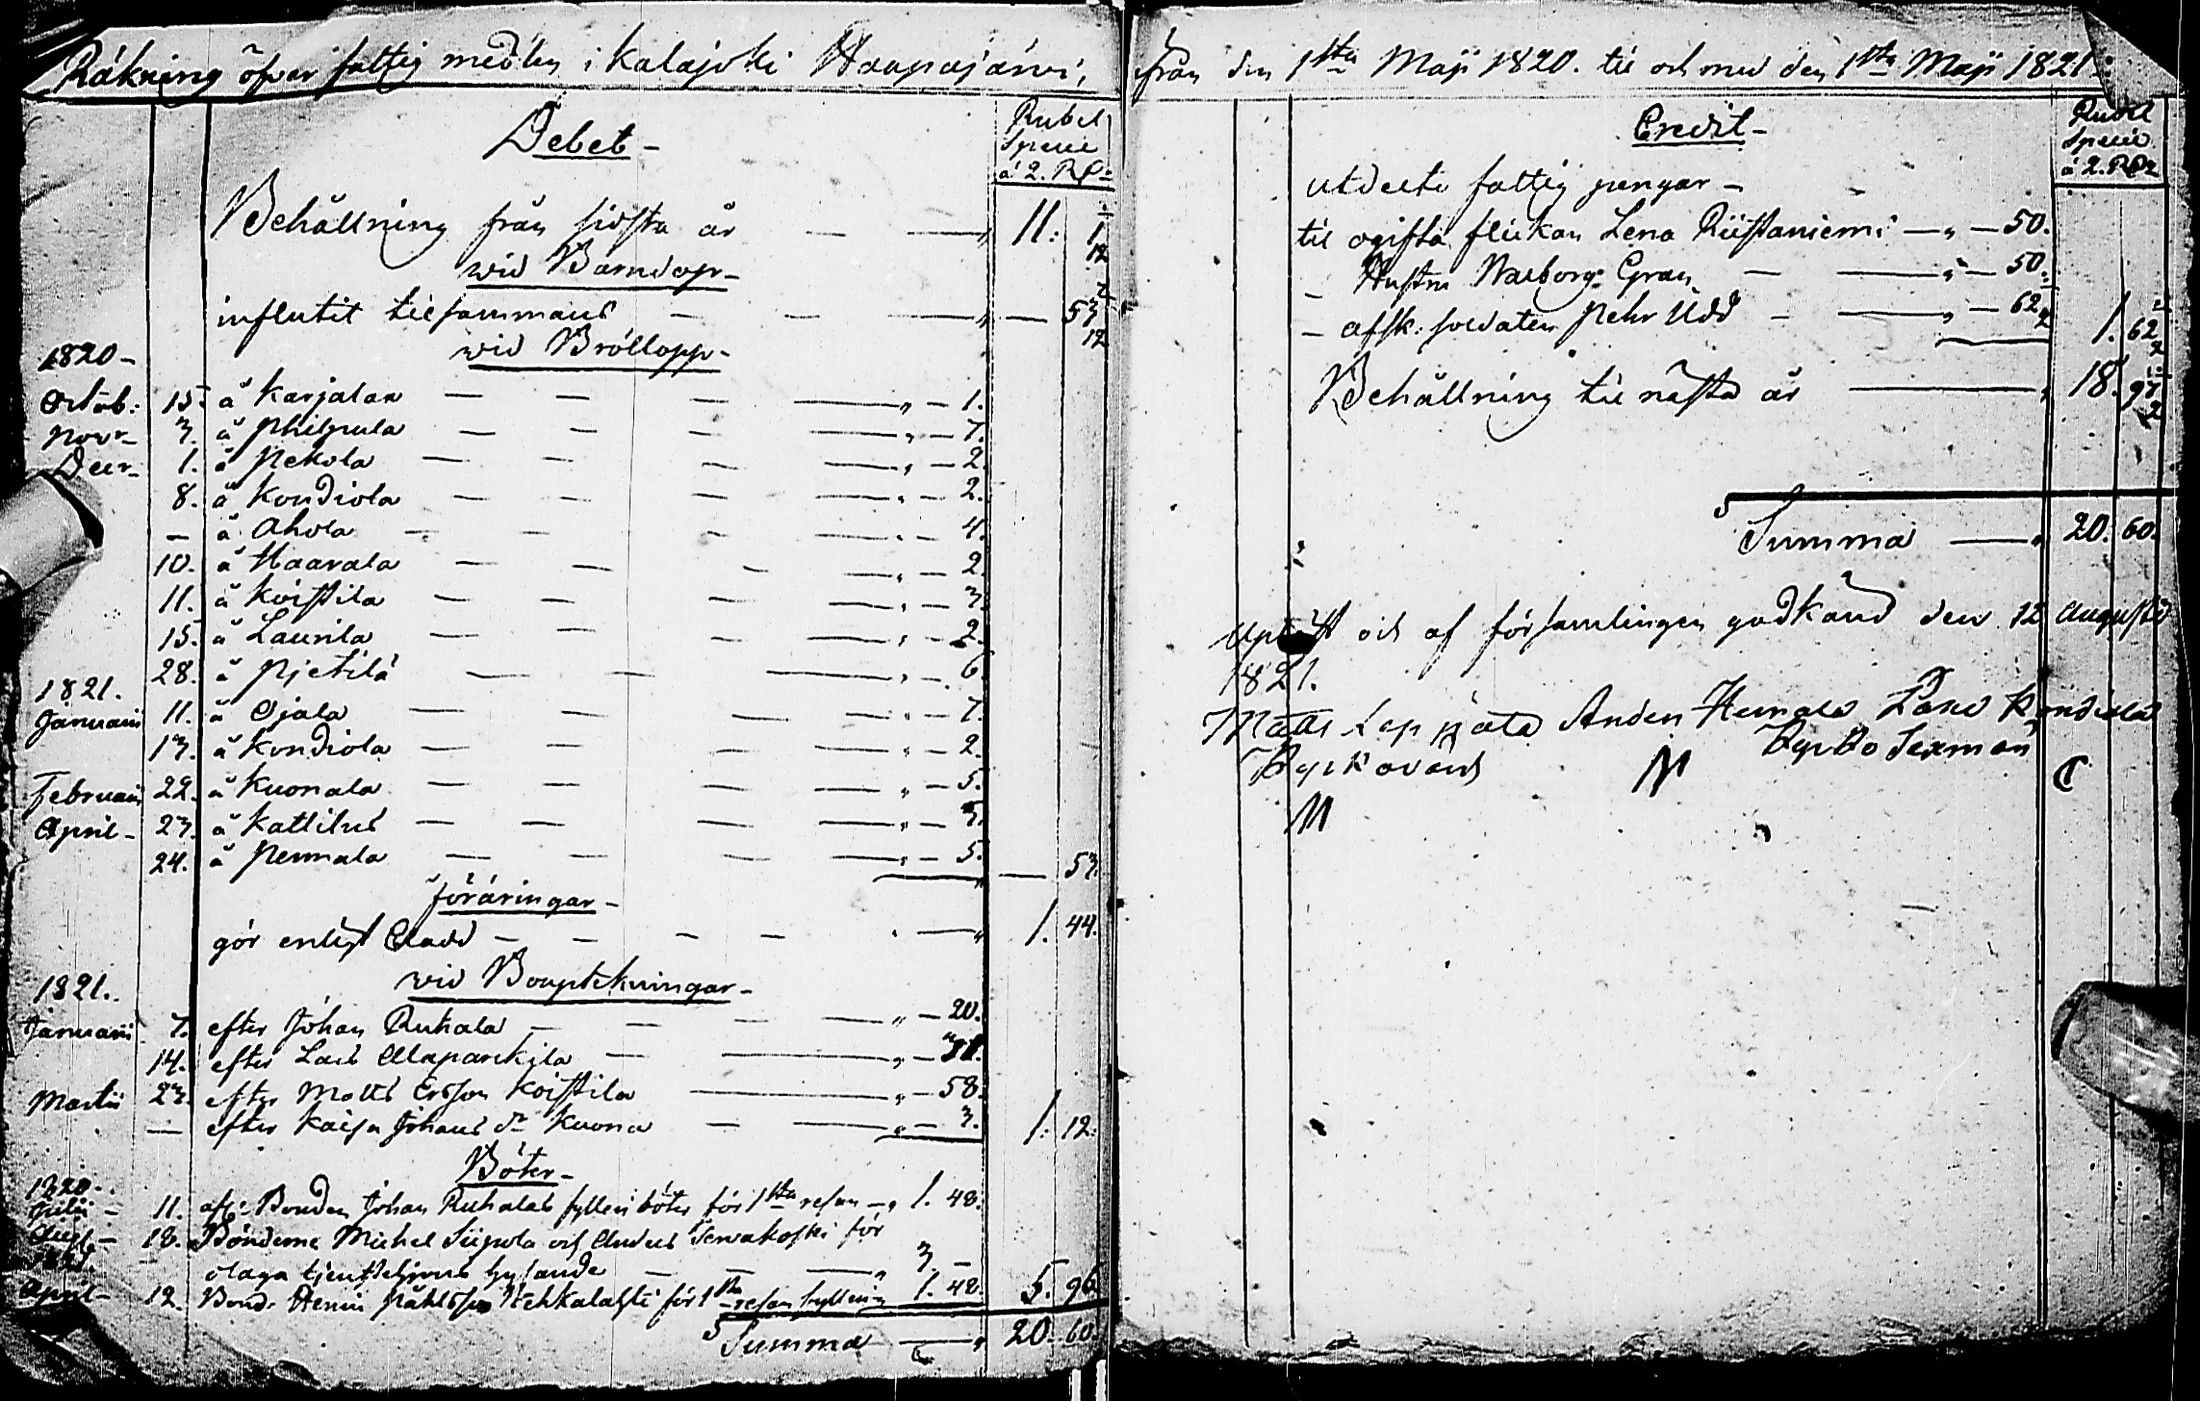 Räkning öfver fattig medlen i Kalajoki Haapajärvi,
Debet -
Rubel
Specie
á 2. RP:
Behållning från sidsta år — — „ 11: 1/12
wid Barndop -
influtit tilsammans — — — „ — 53 1/12
wid Bröllopp -
1820 -
Octob: 15. å Karjalan — — — — „ — 1.
Novr - 3. å Philpula — — — — „ — 7.
Decr - 1. å Pekola — — — „ — 2.
8. å Kondiola — — — — „ — 2.
— å Ahola — — — — „ — 4.
10. å Haarala — — — — „ — 2
11. å Koistila — — — — „ — 3.
15. å Laurila — — — — „ — 2.
28. å Pjetilä — — — „ — 6.
1821.
Januarii 11. å Ojala — — — — „ — 7.
13. å Kondiola — — — — „ — 2.
Februarii 22. å Kuonala — — — — „ — 5.
April - 23. å Kattilus — — — — „ — 3.
24. å Pernala — — — — „ — 5. — 53.
föräringar -
gör enligt Cladd — — — — „ 1. 44.
wid Bouptekningar -
1821.
Januarii 7. efter Johan Ruhala — — — — „ — 20.
14. efter Lars Alaparckila — — „ — 31.
Martii 23. efter Matts Ersson Koistila — „ — 58.
— efter Kaisa Johans dr Kuona — — „ — 3. 1. 12.
Böter -
1820 -
Julii - 11. afl: Bonden Johan Ruhalas fylleri böter för 1sta resan — „ 1. 48.
Aug - 18. Bönderne Michel Siipola och Anders Servakoski för
1821. olaga tjenstehjons hysande — — „ 3. —
April - 12. Bond. Henric Påhlsson för 1sta resan fylleri „ 1. 48. 5. 96.
Summa — „ 20. 60.
från den 1sta Maji 1820. til och med den 1sta Maji 1821 -
Credit -
Rubel
Specie
á 2. RP:
utdeelte fattig pengar -
til ogifta flickan Lena Riistaniemi — „ — 50.
— Hustru Walborg Gran — — „ — 50.
— afsk: soldaten Pehr Udd — — „ — 62 1/2 1. 62 1/2
Behållning til nästa år — „ 18. 97 1/2
Summa — „ 20. 60.
Upläst och af församlingen godkänd den 12 Augusti
1821.
Matts Leppälä Anders Lars Kondiola
Kyrkovärd Kyrko Sexman
M M C